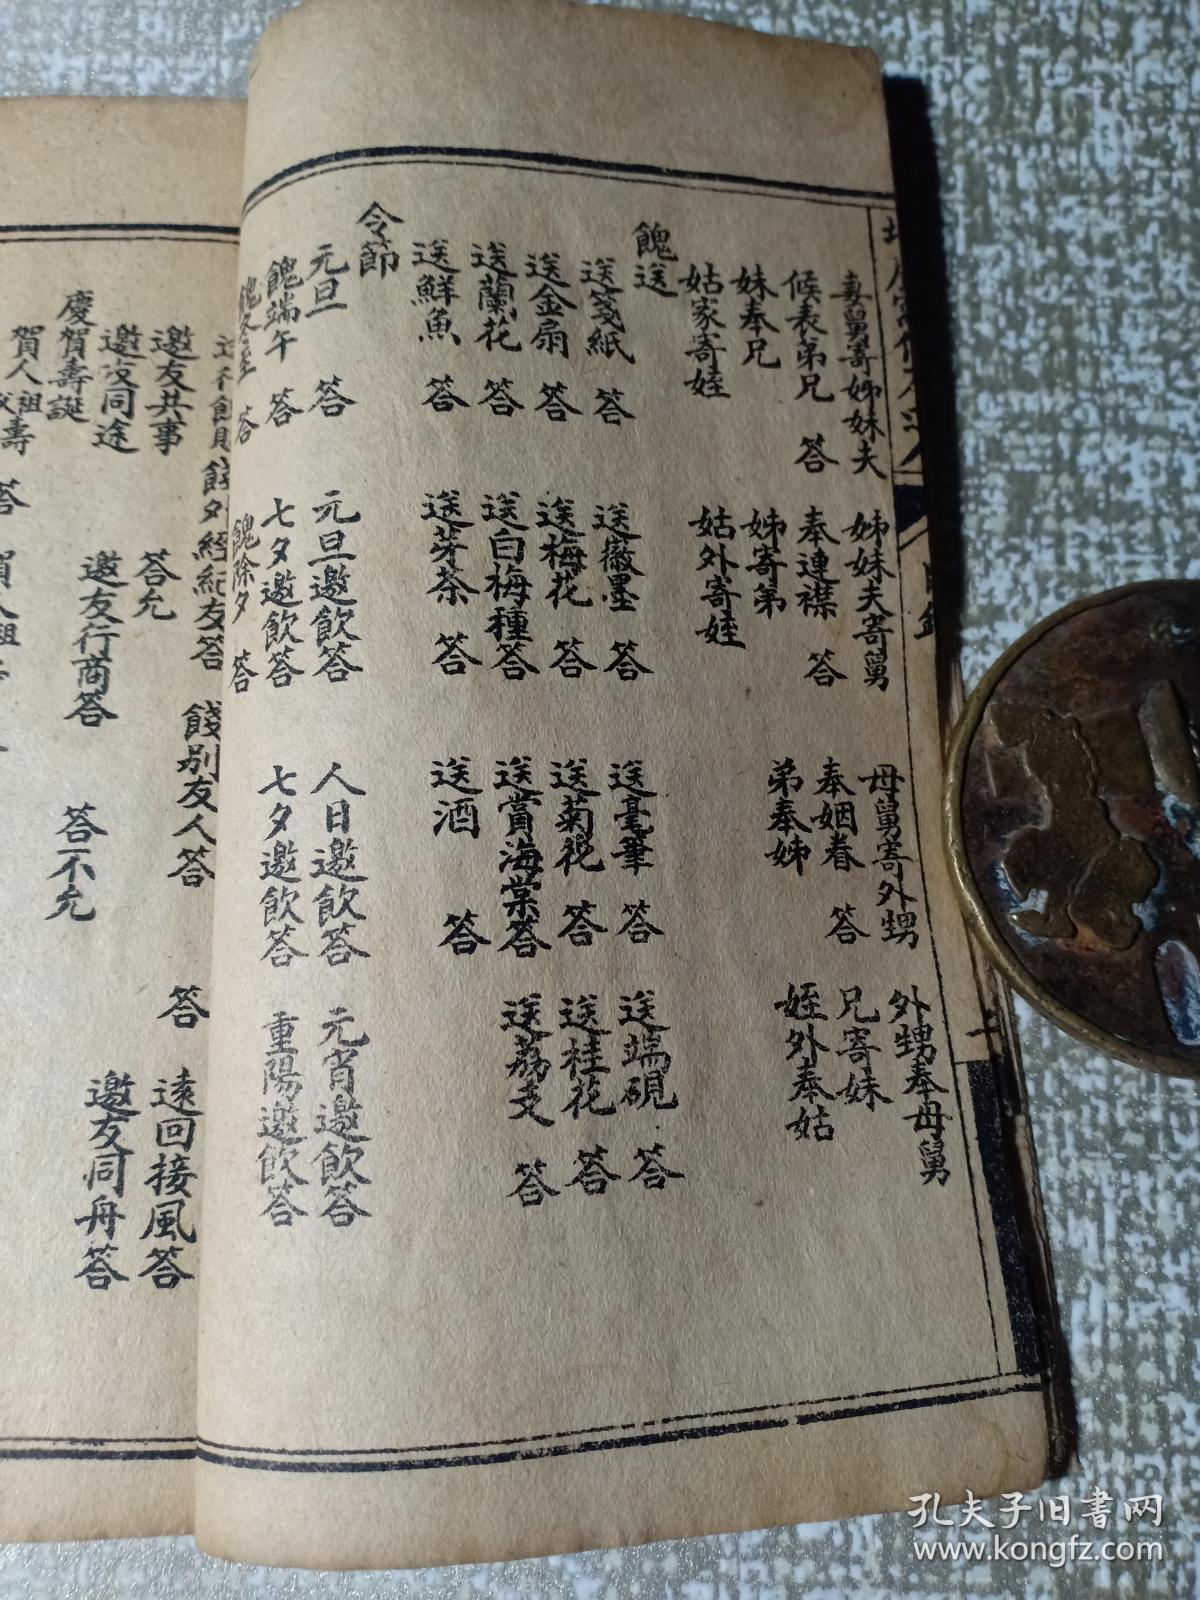 妻舅寄姊妹夫 姊妹夫寄舅 母舅寄外甥 外甥奉母舅
候表弟兄 答 奉連襟 答 奉姻眷 答 兄寄妹
妹奉兄 姊寄弟 弟奉姊 姪外奉姑
姑家寄姪 姑外寄姪
餽送
送箋紙 答 送徽墨 答 送毫筆 答 送端硯 答
送金扇 答 送梅花 答 送菊祝 答 送桂花 答
送蘭花 答 送白梅種答 送賞海棠答 送荔支 答
送鮮魚 答 送芽茶 答 送酒 答
令節
元旦 答 元旦邀飲答 人日邀飲答 元宵邀飲答
餽端午 答 七夕邀飲答 七夕邀飲答 重陽邀飲答
答 餽除夕 答
答 餞別友人答 答 遠回接風答
邀友共事 答允
邀友同途 邀友行商答 答不允 邀友同舟答
慶賀壽誕
賀人祖 壽 答
孔夫子旧书网
www.kongfz.com